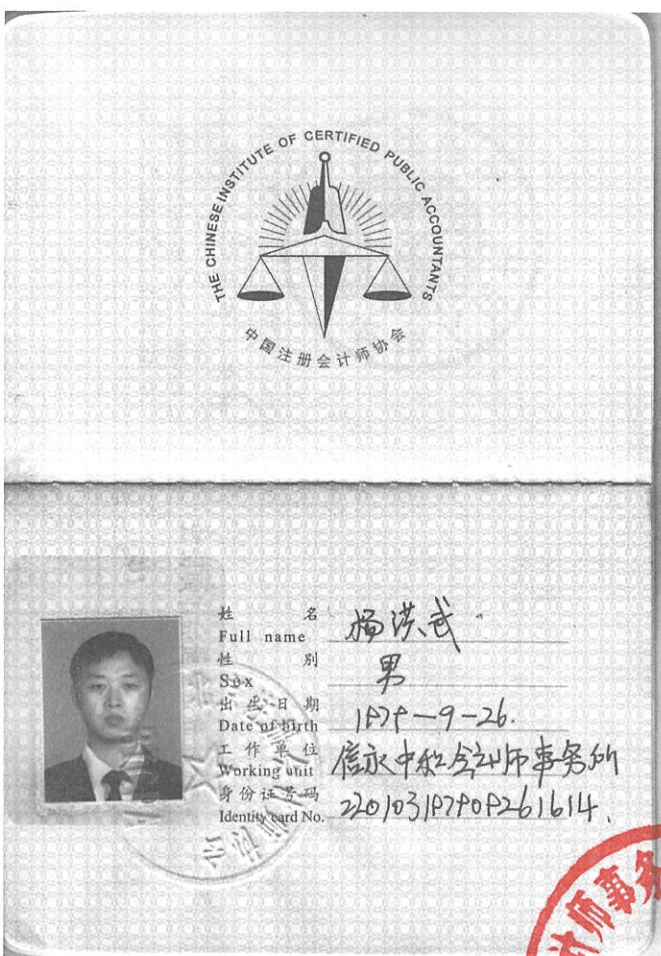 THE CHINESE INSTITUTE OF CERTIFIED PUBLIC ACCOUNTANTS
中国注册会计师协会
姓 名
Full name
杨洪武
性 别
Sex
男
出生日期
Date of birth
1979-9-26.
工作单位
Working unit
信永中和会计师事务所
身份证号码
Identity card No.
220103197909261614.
计师事务